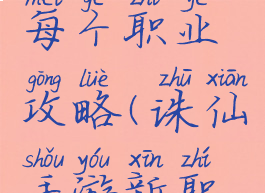 měi gè zhí yè
每个职业
gōng lüè zhū xiān
攻略(诛仙
shǒu yóu xīn zhí
手游新职